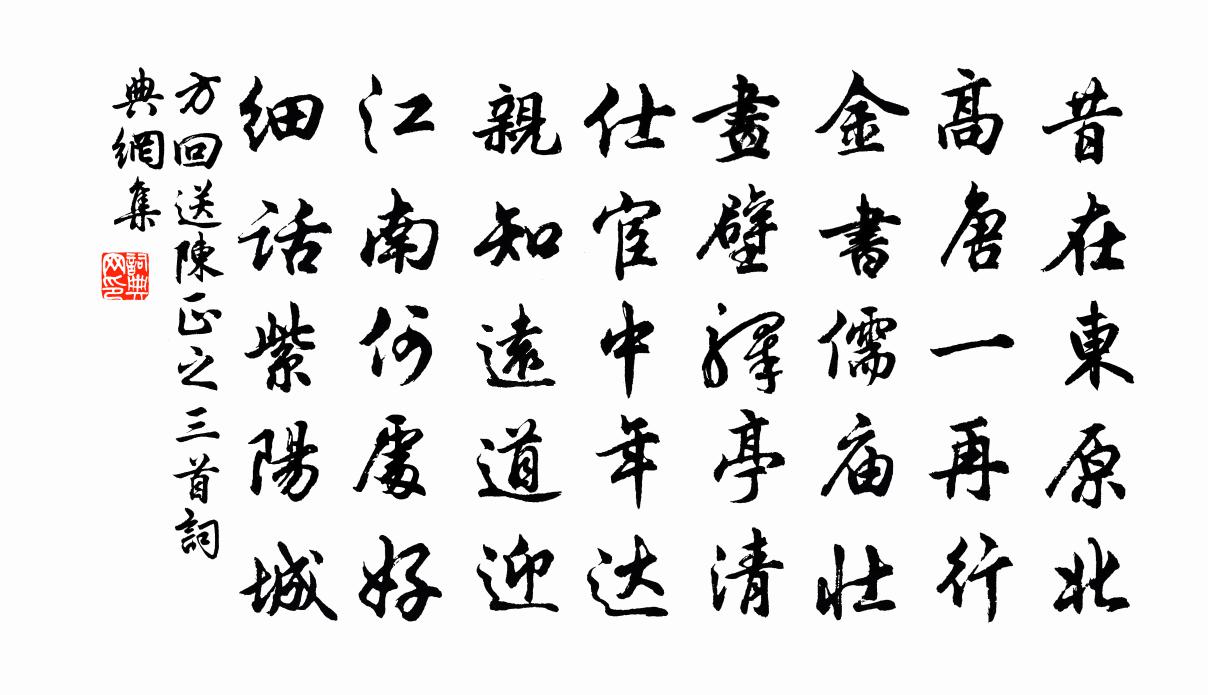 昔在東原北
高唐一再行
金書儒庙壮
畫壁驛亭清
仕宦中年达
親知遠道迎
江南何處好
細话紫陽城
方回送陳正之三首詞
典網集
詞典
网印